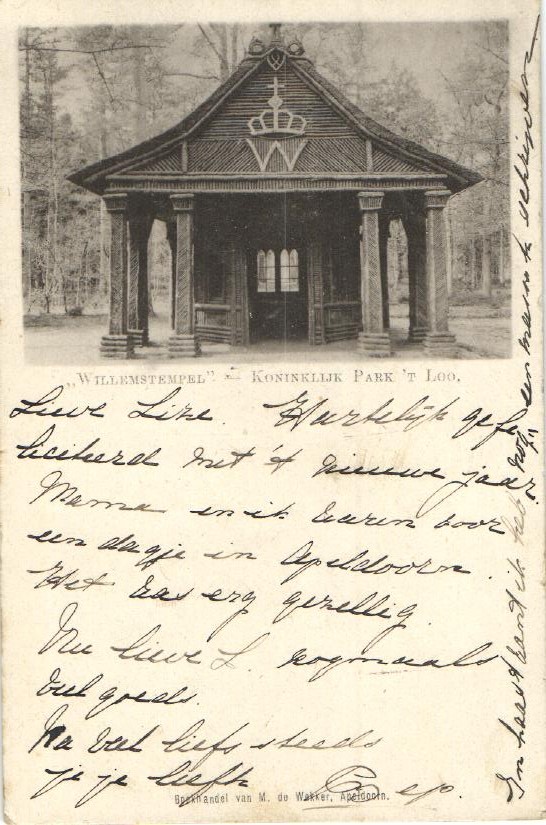 W
„WILLEMSTEMPEL" — KONINKLIJK PARK 'T LOO.
Lieve Lize. Hartelijk gefe
liciteerd met 't nieuwe jaar.
Mama en ik waren voor
een dagje in Apeldoorn.
Het was erg gezellig.
Nu lieve L. nogmaals
veel goeds.
Na veel liefs steeds
je je liefh. Bep.
Boekhandel van M. de Wekker, Apeldoorn.
In haast want ik heb nog een te schrijven